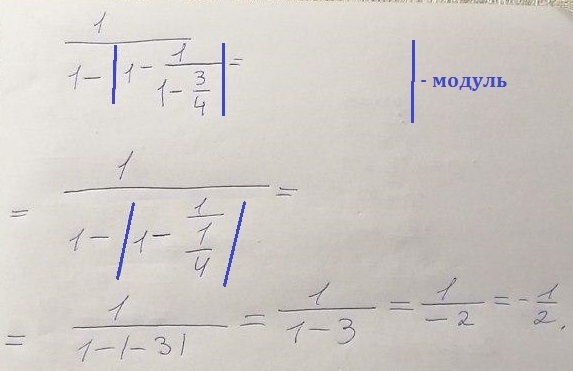 1
1-|1- 1
1- 3
4
| =
| - модуль
= 1
1-|1- 1
1
4
| =
= 1
1-|-3| = 1
1-3 = 1
-2 = - 1
2 .